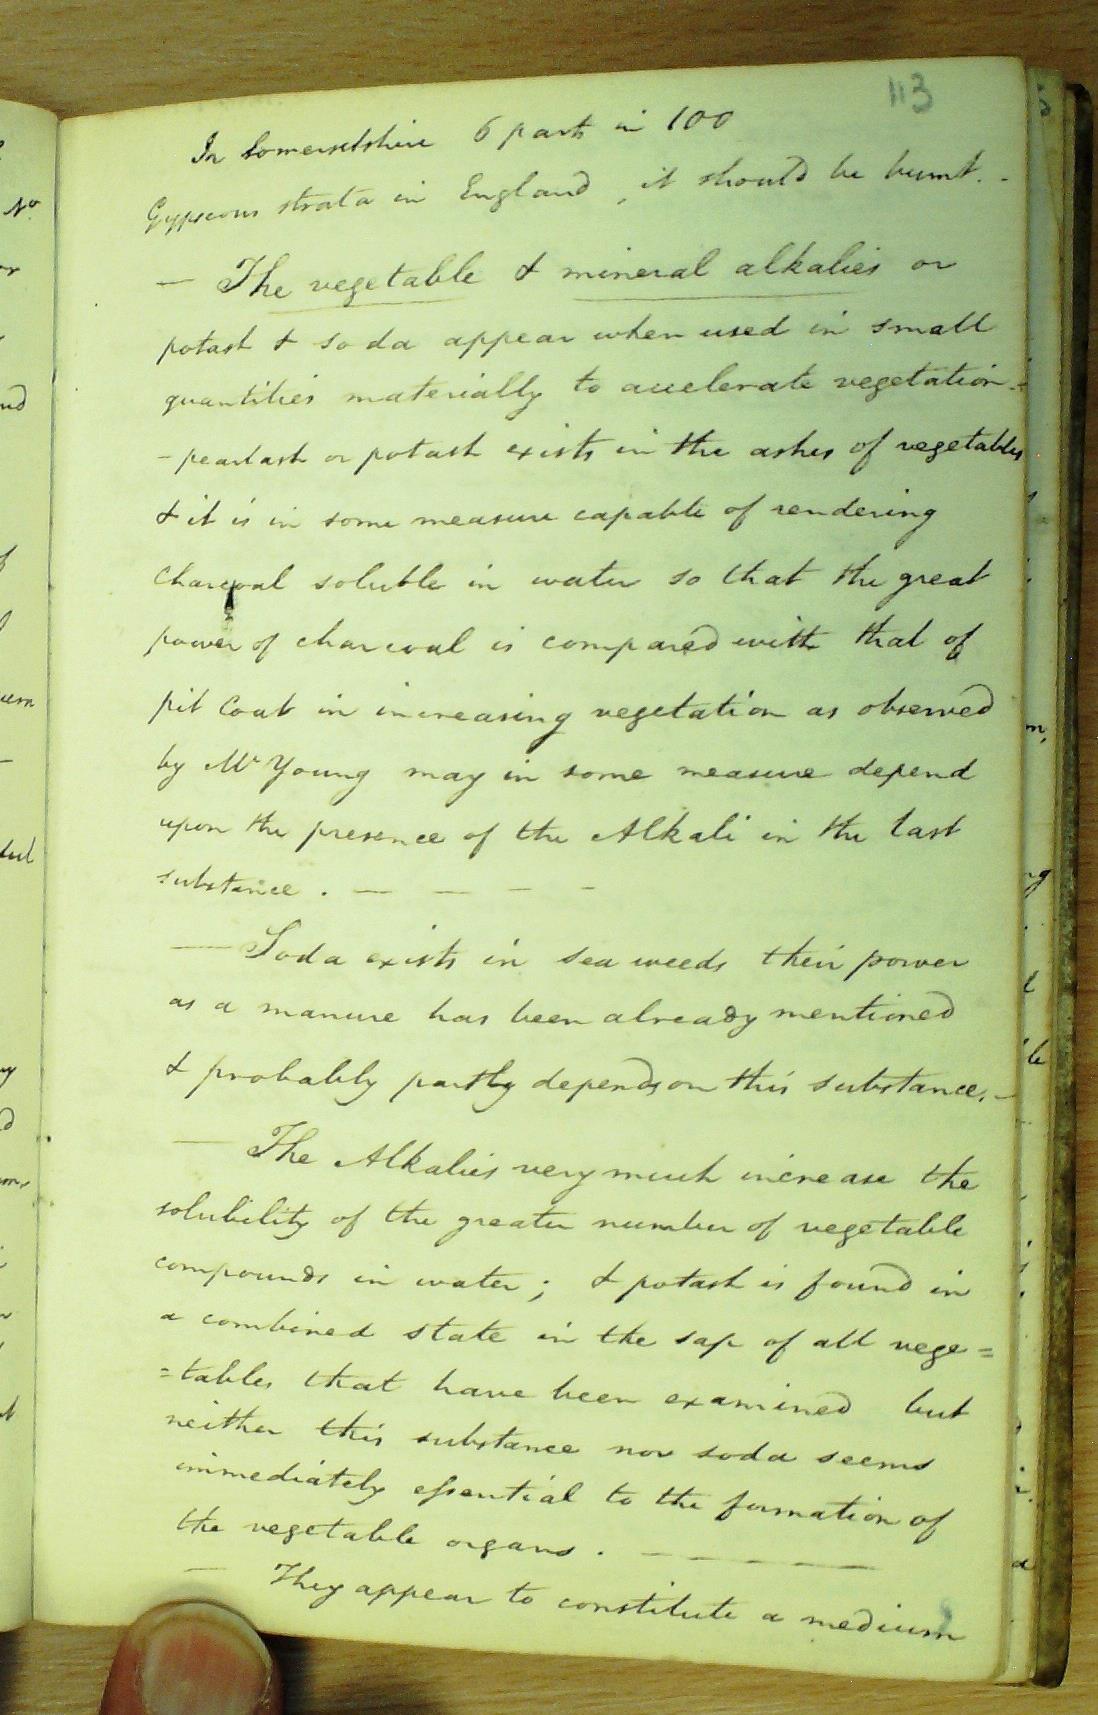 113
In Somersetshire 6 parts in 100
Gypseous strata in England, it should be burnt. -
— The vegetable & mineral alkalies or
potash & soda appear when used in small
quantities materially to accelerate vegetation -
- pearlash or potash exists in the ashes of vegetables
& it is in some measure capable of rendering
charcoal soluble in water so that the great
power of charcoal is compared with that of
pit Coal in increasing vegetation as observed
by Mr Young may in some measure depend
upon the presence of the Alkali in the last
substance. — — — -
— Soda exists in sea weeds their power
as a manure has been already mentioned
& probably partly depends on this substance. -
— The Alkalies very much increase the
solubility of the greater number of vegetable
compounds in water; & potash is found in
a combined state in the sap of all vege=
=tables that have been examined but
neither this substance nor soda seems
immediately essential to the formation of
the vegetable organs. — - - - - —
— They appear to constitute a medium